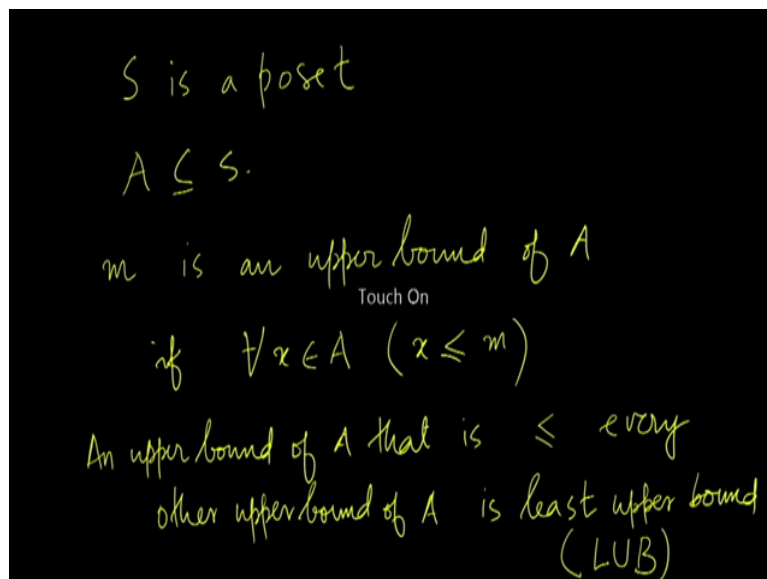 S is a poset
A ⊆ S.
m is an upper bound of A
Touch On
if ∀x ∈ A (x ≤ m)
An upper bound of A that is ≤ every
other upper bound of A is least upper bound
(LUB)